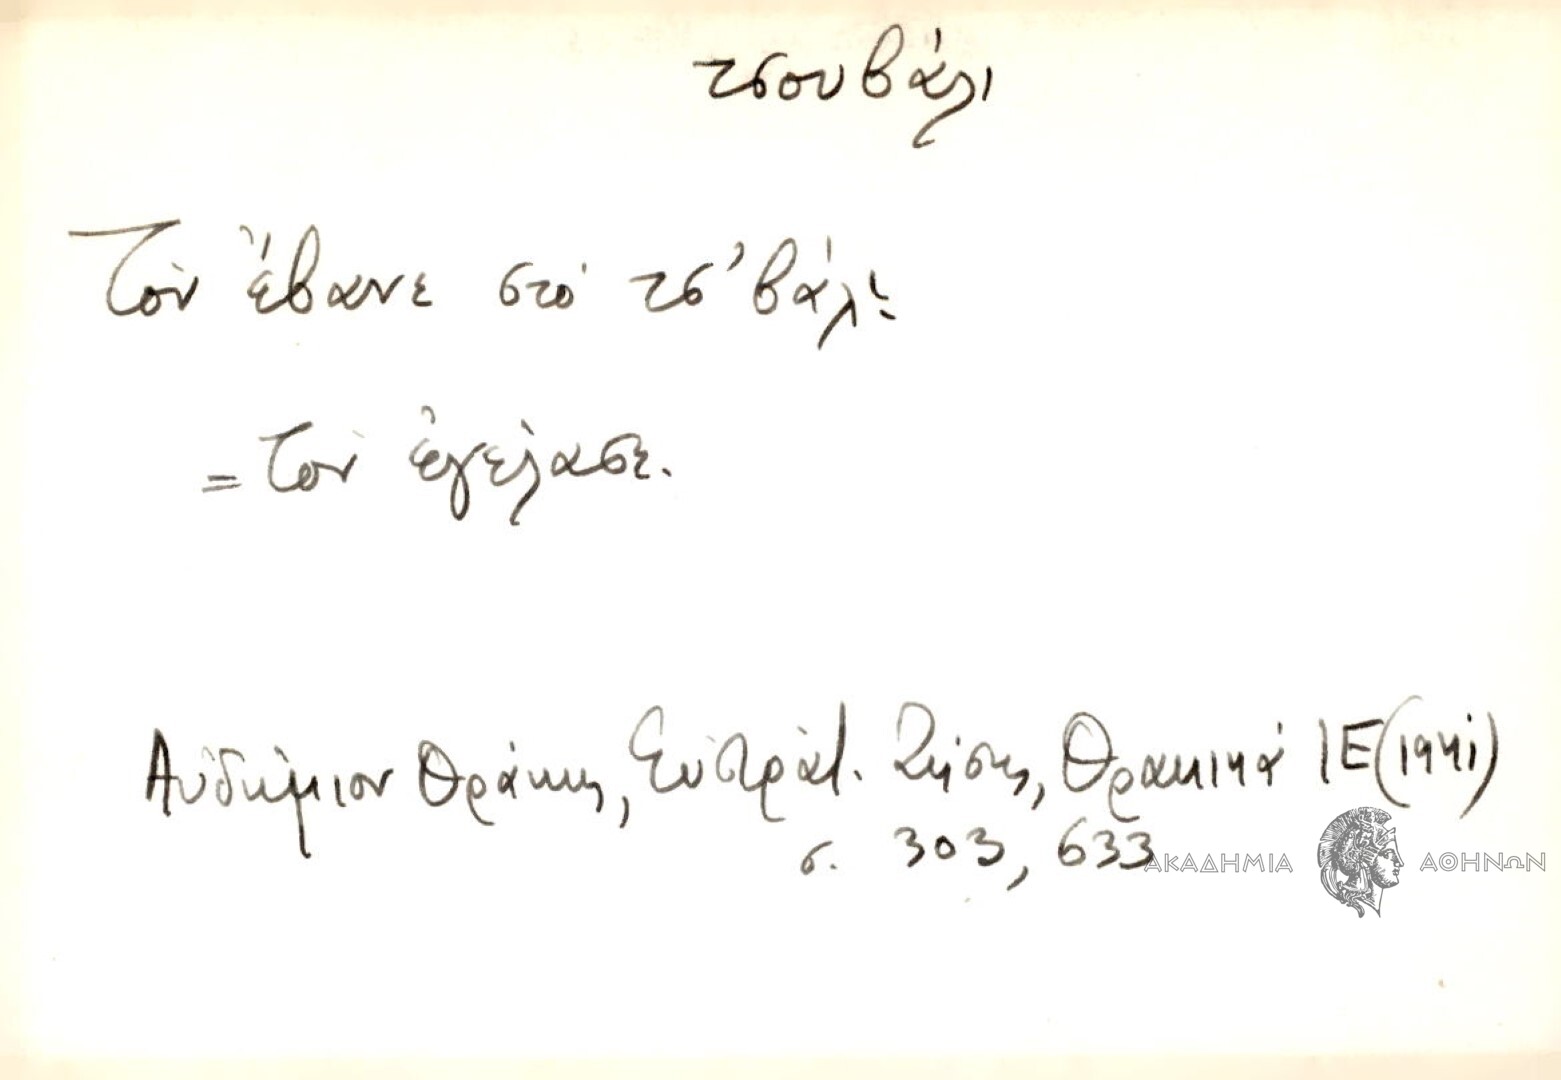 τσουβάλι
Τὸν ἔβανε στὸ τσ'βάλι
= Τὸν ἐγέλασε.
Αὐδήμιον Θράκης, Εὐστράτ. Ζήσης, Θρακικά ΙΕ (1941)
σ. 303, 633
ΑΚΑΔΗΜΙΑ ΑΘΗΝΩΝ